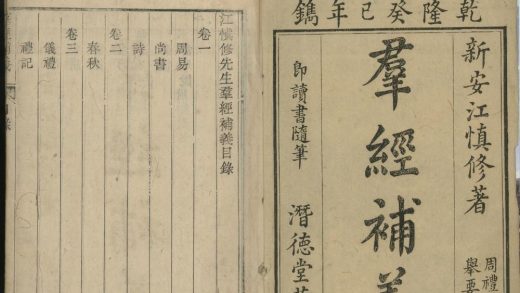 乾隆癸巳年鐫
新安江慎修著
周禮
舉要
羣經補義
即讀書隨筆
潛德堂
江慎修先生羣經補義目錄
卷一
周易
尚書
詩
卷二
春秋
卷三
儀禮
禮記